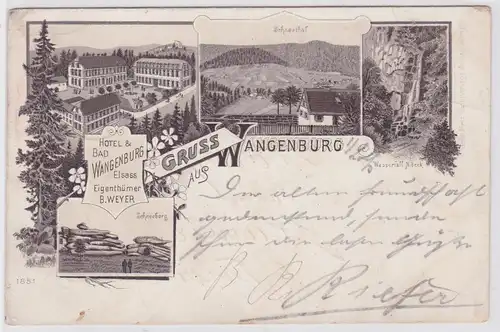 Schneetal
HOTEL &
BAD
WANGENBURG
Elsass
Eigenthümer
B. WEYER
GRUSS
AUS
WANGENBURG
Wasserfall Nideck
Schneeberg
1881
Der alten Freundschaft
gedenkend sende
Ihnen die besten Grüße
B Kieffer